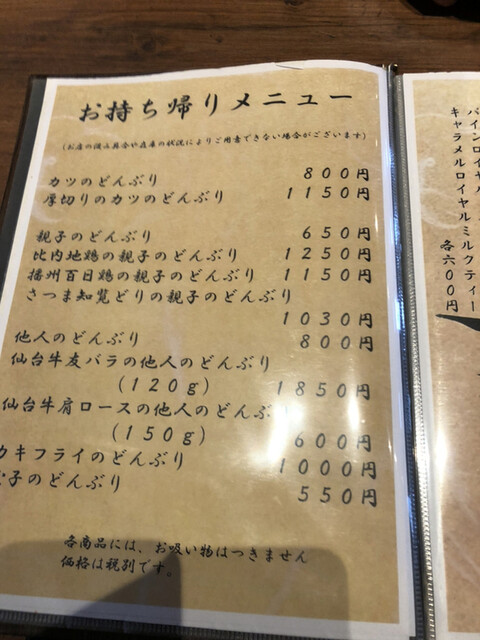 お持ち帰りメニュー
(お店の混み具合や在庫の状況によりご用意できない場合がございます)
カツのどんぶり 800円
厚切りのカツのどんぶり 1150円
親子のどんぶり 650円
比内地鶏の親子のどんぶり 1250円
播州百日鶏の親子のどんぶり 1150円
さつま知覧どりの親子のどんぶり
1030円
他人のどんぶり 800円
仙台牛友バラの他人のどんぶり
(120g) 1850円
仙台牛肩ロースの他人のどんぶ
(150g) 600円
カキフライのどんぶり 1000円
子のどんぶり 550円
各商品には、お吸い物はつきません
価格は税別です。
キャラメルロイヤルミルクティー
各六〇〇円